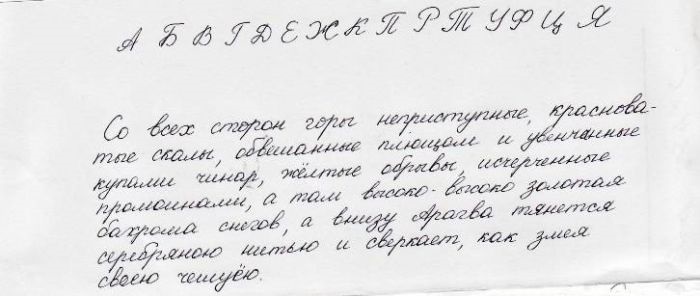 А Б В Г Д Е Ж К П Р Т У Ф Ц Я
Со всех сторон горы неприступные, краснова-
тые скалы, обвешанные плющом и увенчанные
купами чинар, жёлтые обрывы, исчерченные
промоинами, а там высоко-высоко золотая
бахрома снегов, а внизу Арагва тянется
серебряною нитью и сверкает, как змея
своею чешуёю.